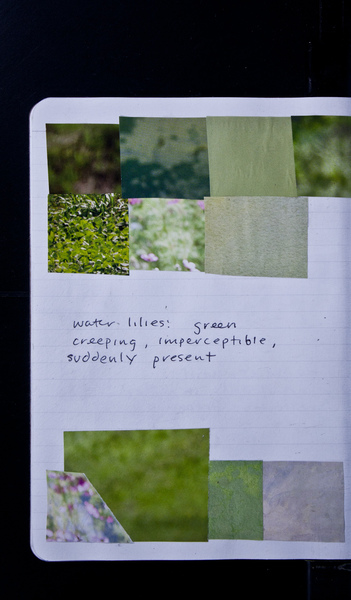 water-lilies: green
creeping, imperceptible,
suddenly present